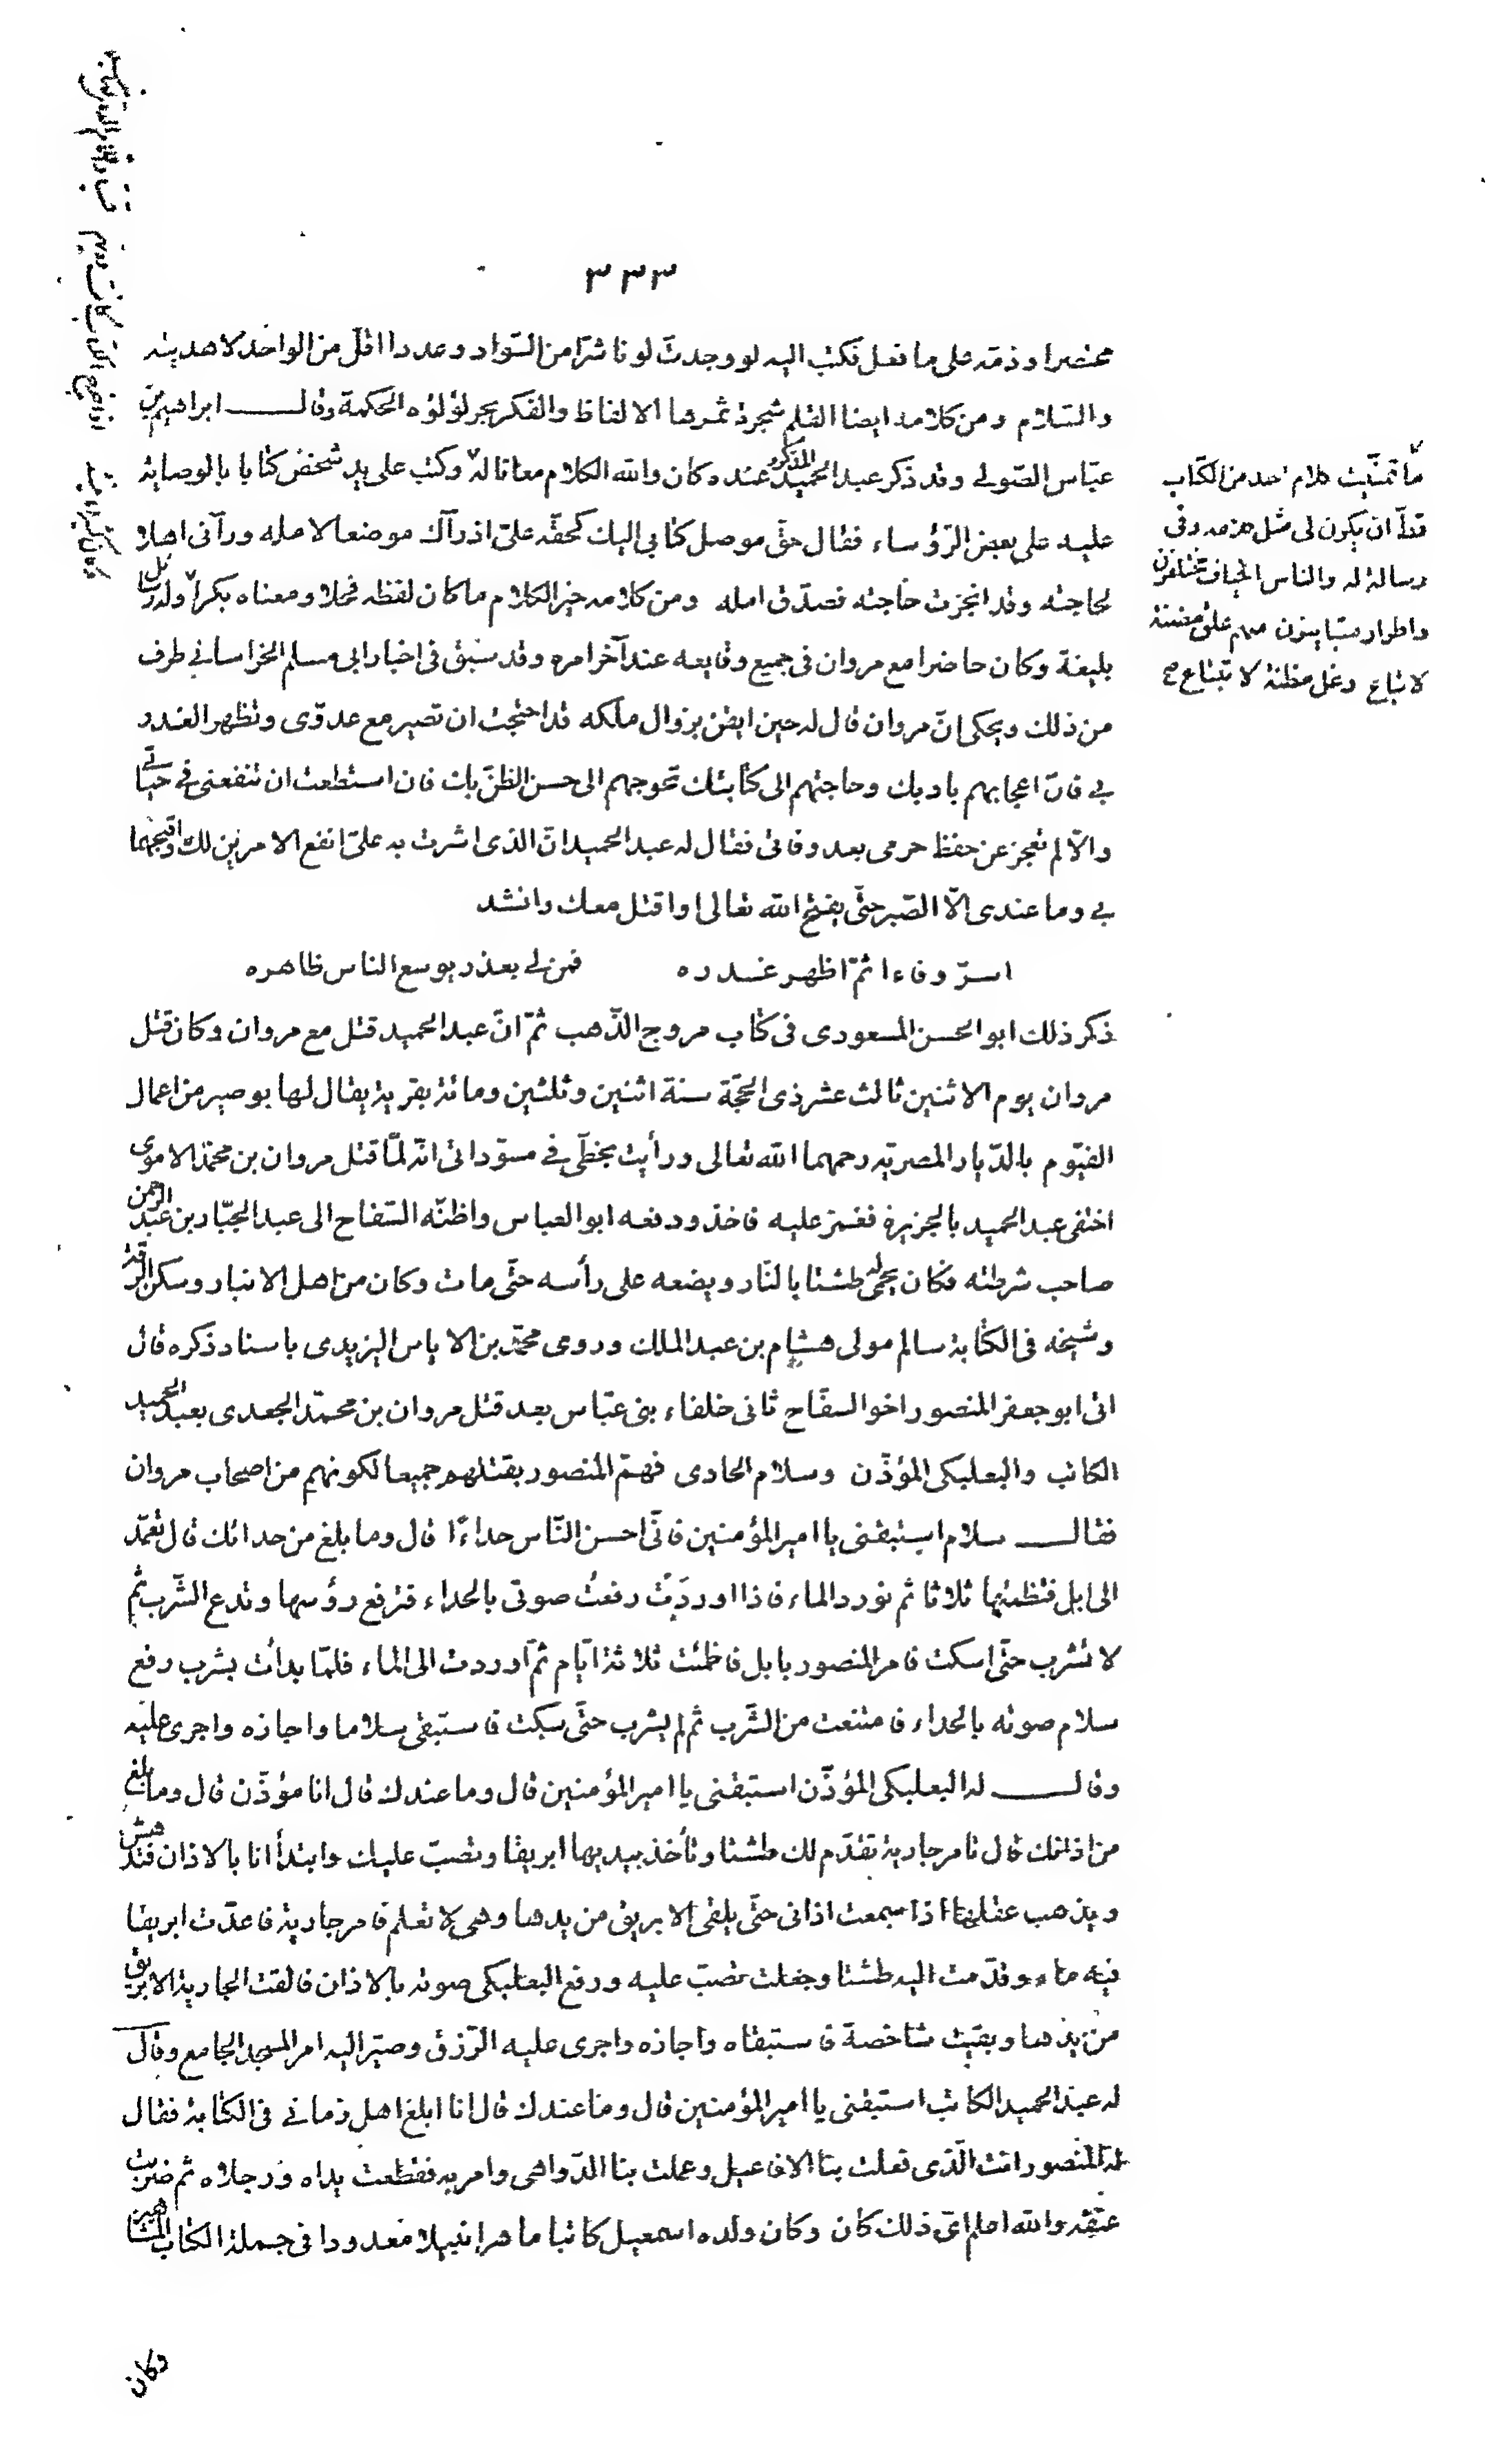 ٣٣٣
مختصرا وذمّه على ما فعل فكتب اليه لو وجدت لونا شرّا من السّواد وعددا اقلّ من الواحد لاهديته
والسّلام ومن كلامه ايضا القلم شجرة ثمرها الالفاظ والفكر بحر لؤلؤه الحكمة وقال ابراهيم بن
عبّاس الصّولى وقد ذكر عبد الحميد المذكور عنده كان والله الكلام معانا له وكتب على يد شخص كتابا بالوصاية
عليه على بعض الرّؤساء فقال حقّ موصل كتابى اليك كحقّه علىّ اذ رآك موضعا لامله ورآنى اهلا
لحاجته وقد انجزت حاجته فصدّق امله ومن كلامه خير الكلام ما كان لفظه فحلا ومعناه بكرا وله رسائل
بليغة وكان حاضرا مع مروان فى جميع وقايعه عند آخر امره وقد سبق فى اخبار ابى مسلم الخراسانى طرف
من ذلك ويحكى انّ مروان قال له حين ايقن بزوال ملكه قد احتجت ان تصير مع عدوّى وتظهر الغدر
بى فانّ اعجابهم بادبك وحاجتهم الى كتابتك تحوجهم الى حسن الظنّ بك فان استطعت ان تنفعنى فى حياتى
والّا لم تعجز عن حفظ حرمى بعد وفاتى فقال له عبد الحميد انّ الذى اشرت به علىّ انفع الامرين لك واقبحهما
بى وما عندى الّا الصّبر حتّى يفتح الله تعالى او اقتل معك وانشد
اسرّ وفاءا ثمّ اظهر غدره فمن لى بعذر يوسع الناس ظاهره
ذكر ذلك ابو الحسن المسعودى فى كتاب مروج الذّهب ثمّ انّ عبد الحميد قتل مع مروان وكان قتل
مروان يوم الاثنين ثالث عشر ذى الحجّة سنة اثنين وثلثين ومائة بقرية يقال لها بوصير من اعمال
الفيّوم بالدّيار المصريّه رحمهما الله تعالى ورأيت بخطّى فى مسوّداتى انّه لمّا قتل مروان بن محمّد الاموى
اختفى عبد الحميد بالجزيرة فغمز عليه فاخذ ودفعه ابو العباس واظنّه السّفاح الى عبد الجبّار بن عبد الرحمن
صاحب شرطته فكان يحمى له طشتا بالنّار ويضعه على رأسه حتّى مات وكان من اهل الانبار وسكن الرقّة
وشيخه فى الكتابة سالم مولى هشام بن عبد الملك وروى محمّد بن الاياس اليزيدى باسناد ذكره قال
اتى ابو جعفر المنصور اخو السفّاح ثانى خلفاء بنى عبّاس بعد قتل مروان بن محمّد الجعدى بعبد الحميد
الكاتب والبعلبكى المؤذّن وسلام الحادى فهمّ المنصور بقتلهم جميعا لكونهم من اصحاب مروان
فقال سلام استبقنى يا امير المؤمنين فانّى احسن النّاس حداءً قال وما بلغ من حدائك قال تعمّد
الى ابل فتظمئها ثلاثا ثم تورد الماء فاذا اوردَتْ رفعتُ صوتى بالحداء فترفع رؤسها وتدع الشّرب ثم
لا تشرب حتّى اسكت فامر المنصور بابل فاظمئت ثلاثة ايّام ثمّ اوردت الى الماء فلمّا بدأت بشرب رفع
سلام صوته بالحداء فامتنعت من الشّرب ثم لم يشرب حتّى سكت فاستبقى سلاما واجازه واجرى عليه
وقال له البعلبكى المؤذّن استبقنى يا امير المؤمنين قال وما عندك قال انا مؤذّن قال وما بلغ
من اذانك قال تامر جارية تقدّم لك طشتا وتأخذ بيديها ابريقا وتصبّ عليك وابتدأ انا بالاذان فتدهش
ويذهب عقلها اذا سمعت اذانى حتّى يلقى الابريق من يدها وهى لا تعلم فامر جارية فاعدّت ابريقا
فيه ماء وقدّمت اليه طشتا وجعلت تصبّ عليه ورفع البعلبكى صوته بالاذان فالقت الجارية الابريق
من يدها وبقيت شاخصة فاستبقاه واجازه واجرى عليه الرّزق وصيّر اليه امر المسجد الجامع وقال
له عبد الحميد الكاتب استبقنى يا امير المؤمنين قال وما عندك قال انا ابلغ اهل زمانى فى الكتابة فقال
له المنصور انت الّذى فعلت بنا الافاعيل وعملت بنا الدّواهى وامر به فقطعت يداه ورجلاه ثم ضربت
عنقه والله اعلم اىّ ذلك كان وكان ولده اسمعيل كاتبا ماهرا نبيلا معدودا فى جملة الكتاب المشاهير
وكان
ما تمنّيت كلام احد من الكتّاب
قطّ ان يكون لى مثل كلامه وفى
رسالة له والناس اخياف مختلفون
واطوار متباينون منهم علق مضنّة
لا تباع وغل مظنّة لا تبتاع صح